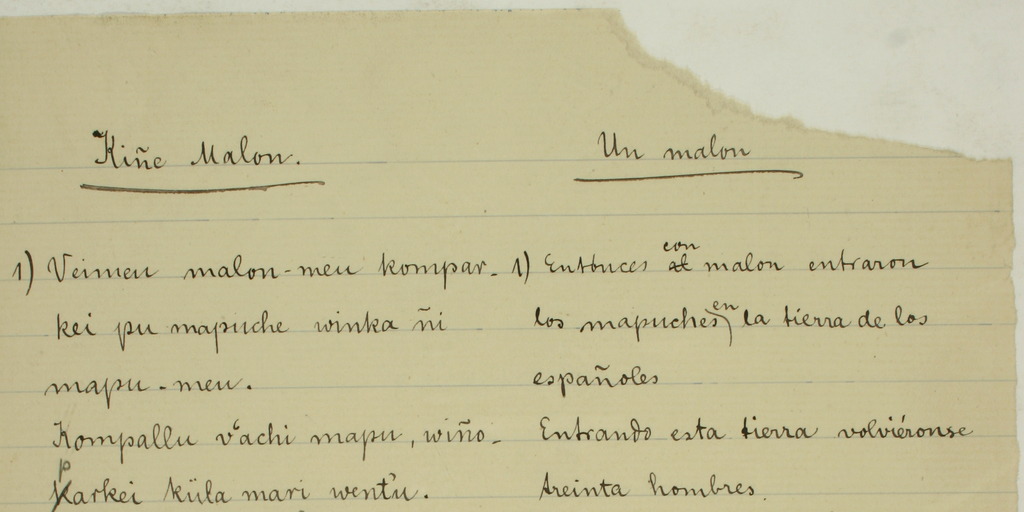 Kiñe Malon.
1) Veimeu malon-meu kompar-
kei pu mapuche winka ñi
mapu-meu.
Kompallu vachi mapu, wiño-
parkei küla mari went'u.
Un malon
1) Entonces con malon entraron
los mapuches en la tierra de los
españoles
Entrando esta tierra volviéronse
treinta hombres.